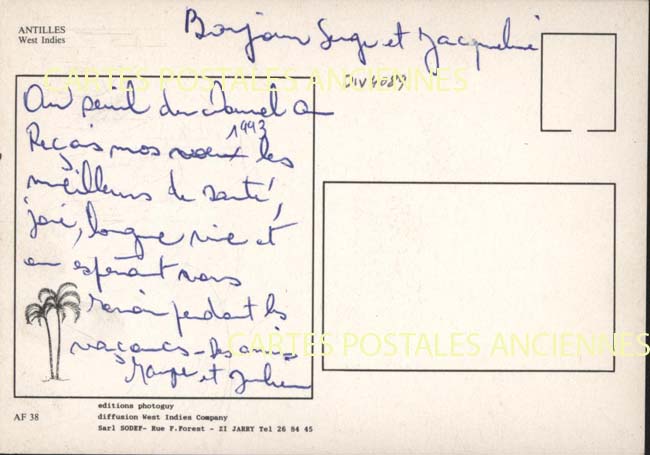 ANTILLES
West Indies
Bonjour Serge et Jacqueline
CARTES POSTALES ANCIENNES
Au seuil du nouvel an
1993
Reçois mos voeux les
meilleurs de santé,
joie, longue vie et
en espérant vous
revoir pendant les
vacances - Des amis
et Julien
CARTES POSTALES ANCIENNES
AF 38
editions photoguy
diffusion West Indies Company
Sarl SODEF- Rue F.Forest - ZI JARRY Tel 26 84 45